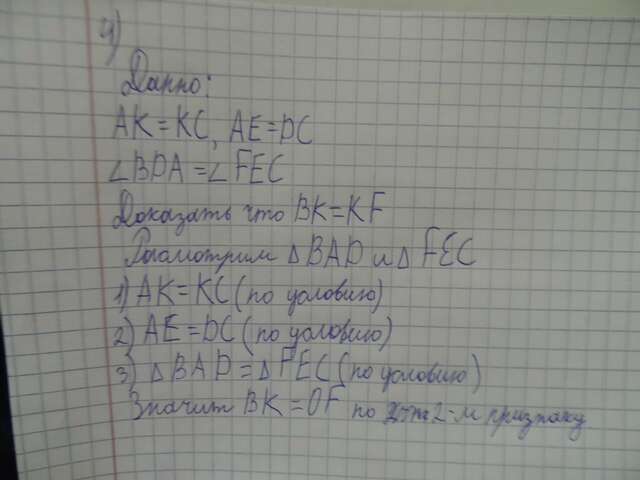 4)
Дапно:
AK=KC, AE=DC
∠BDA=∠FEC
Доказать что BK=KF
Расмотрим △BAD и △FEC
1) AK=KC (по условию)
2) AE=DC (по условию)
3) △BAD=△FEC (по условию)
Значит BK=OF по 2-м признаку